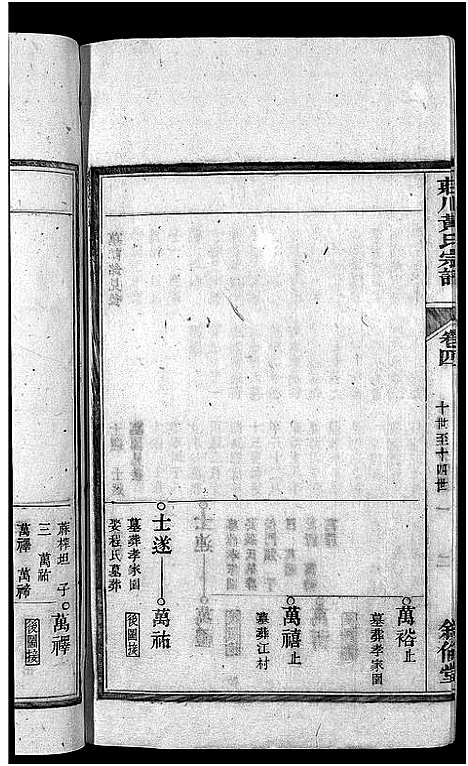 莊川黃氏宗譜
卷四
十世至十四世 一
二
敘倫堂
萬裕止
墓葬李家園
萬禧止
墓葬江村
士遂
萬祐
墓葬李家園
娶程氏墓葬
後圖接
蔴榨坦 子
三 萬祐
萬禪 萬裕
萬禪
後圖接